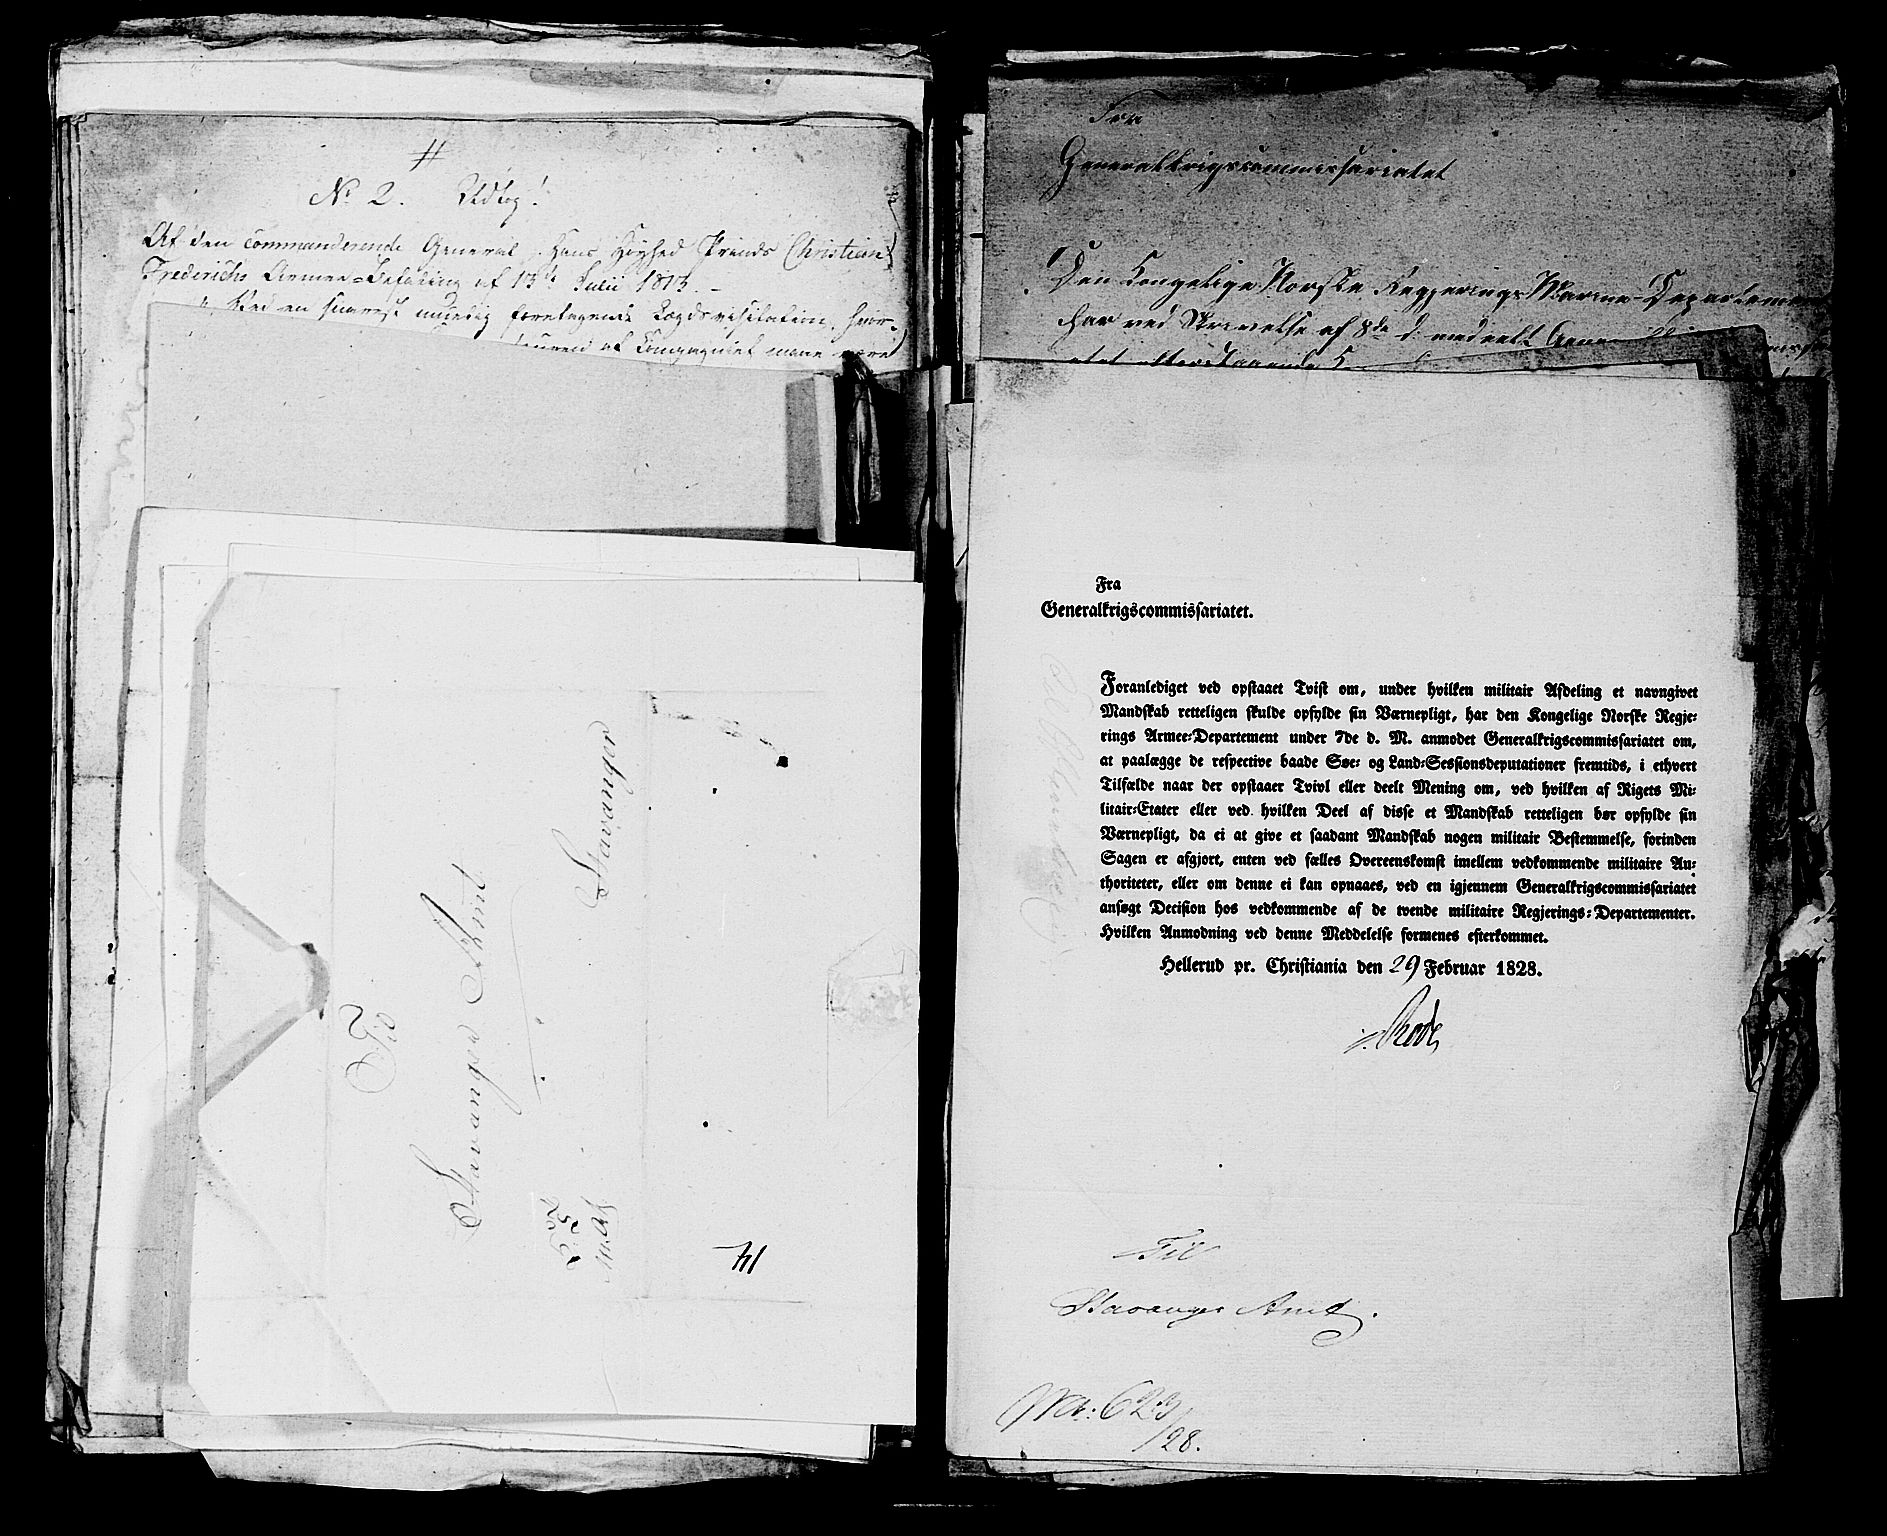 No 2. Udtog!
Af den Commanderende General, Hans Høyhed Prinds Christian
Frederichs Armee-Befaling af 13de Julii 1813. –
af Compagniet maae være
Til
Stavanger Amt
Stavanger
14
Fra
Generalkrigscommissariatet
Den Kongelige Norske Regjerings Marine-Departement
har ved Skrivelse af 8de d. meddeelt
Fra
Generalkrigscommissariatet.
Foranlediget ved opstaaet Tvist om, under hvilken militair Afdeling et navngivet
Mandskab retteligen skulde opfylde sin Værnepligt, har den Kongelige Norske Regje-
rings Armee-Departement under 7de d. M. anmodet Generalkrigscommissariatet om,
at paalægge de respective baade Søe- og Land-Sessionsdeputationer fremtids, i ethvert
Tilfælde naar der opstaaer Tvivl eller deelt Mening om, ved hvilken af Rigets Mi-
litair-Etater eller ved hvilken Deel af disse et Mandskab retteligen bør opfylde sin
Værnepligt, da ei at give et saadant Mandskab nogen militair Bestemmelse, forinden
Sagen er afgjort, enten ved fælles Overeenskomst imellem vedkommende militaire Au-
thoriteter, eller om denne ei kan opnaaes, ved en igjennem Generalkrigscommissariatet
ansøgt Decision hos vedkommende af de tvende militaire Regjerings-Departementer.
Hvilken Anmodning ved denne Meddelelse formenes efterkommet.
Hellerud pr. Christiania den 29 Februar 1828.
Til
Stavanger Amt.
623
/28.